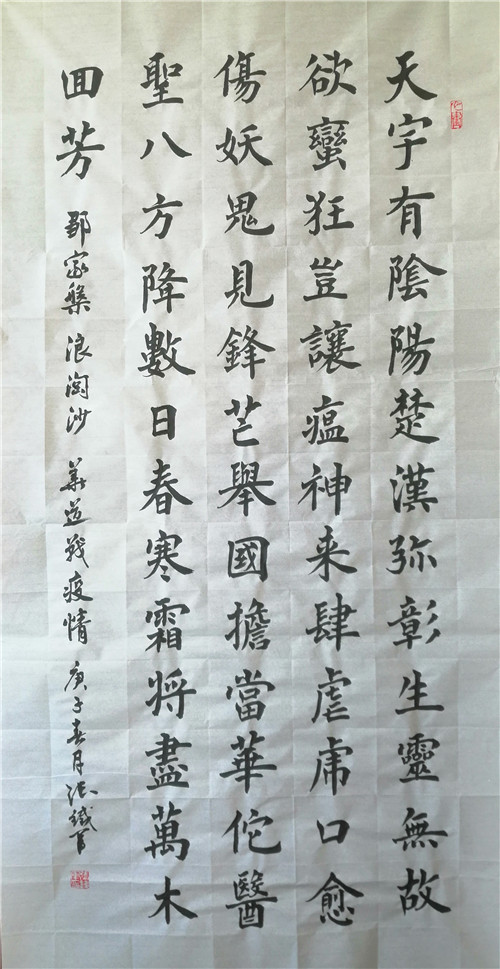 天宇有陰陽楚漢弥彰生靈無故
欲蠻狂豈讓瘟神来肆虐虎口愈
傷妖鬼見鋒芒舉國擔當華佗醫
聖八方降數日春寒霜将盡萬木
囬芳 家 浪淘沙 戰疫情 庚子春月